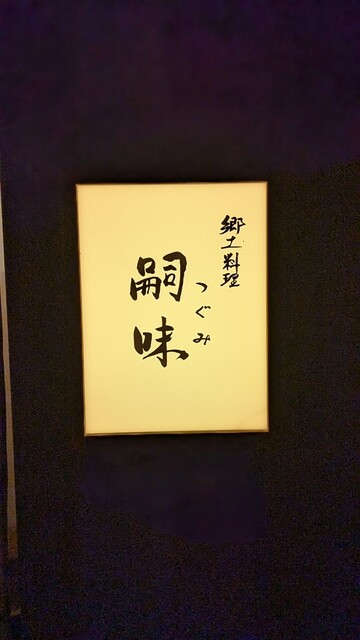 郷土料理
つぐみ
嗣味